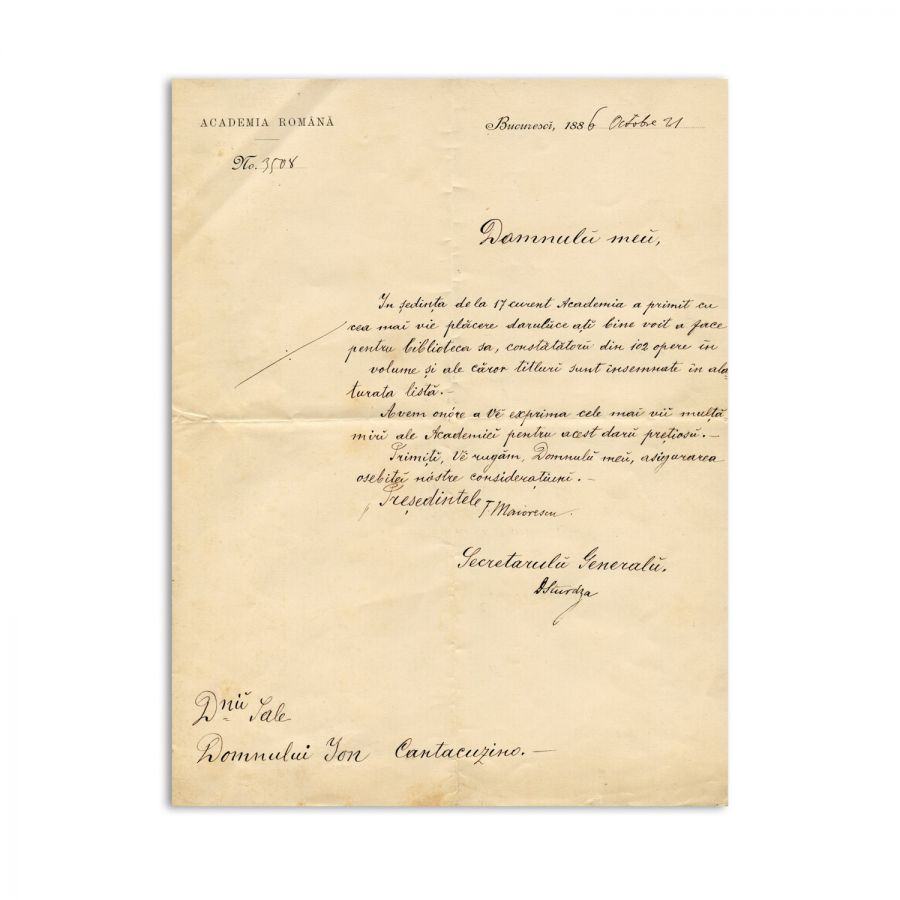 ACADEMIA ROMÂNĂ
Bucurescĭ, 1886 Octobre 21
No. 3508
Domnulŭ meŭ,
In ședința de la 17 curent Academia a primit cu
cea mai vie plăcere darulŭ ce ați bine voit a face
pentru biblioteca sa, constătătorŭ din 102 opere în
volume și ale căror titluri sunt însemnate în ală
turata listă.—
Avem onóre a Vĕ exprima cele mai viĭ mulță
miri ale Academieĭ pentru acest darŭ prețiosŭ.—
Primiți, Vĕ rugăm, Domnulŭ meŭ, asigurarea
osebiteĭ nóstre considerațiunĭ.—
Președintele T Maiorescu.
Secretarulŭ Generalŭ,
DSturdza
Dnŭ Sale
Domnului Ion Cantacuzino.—